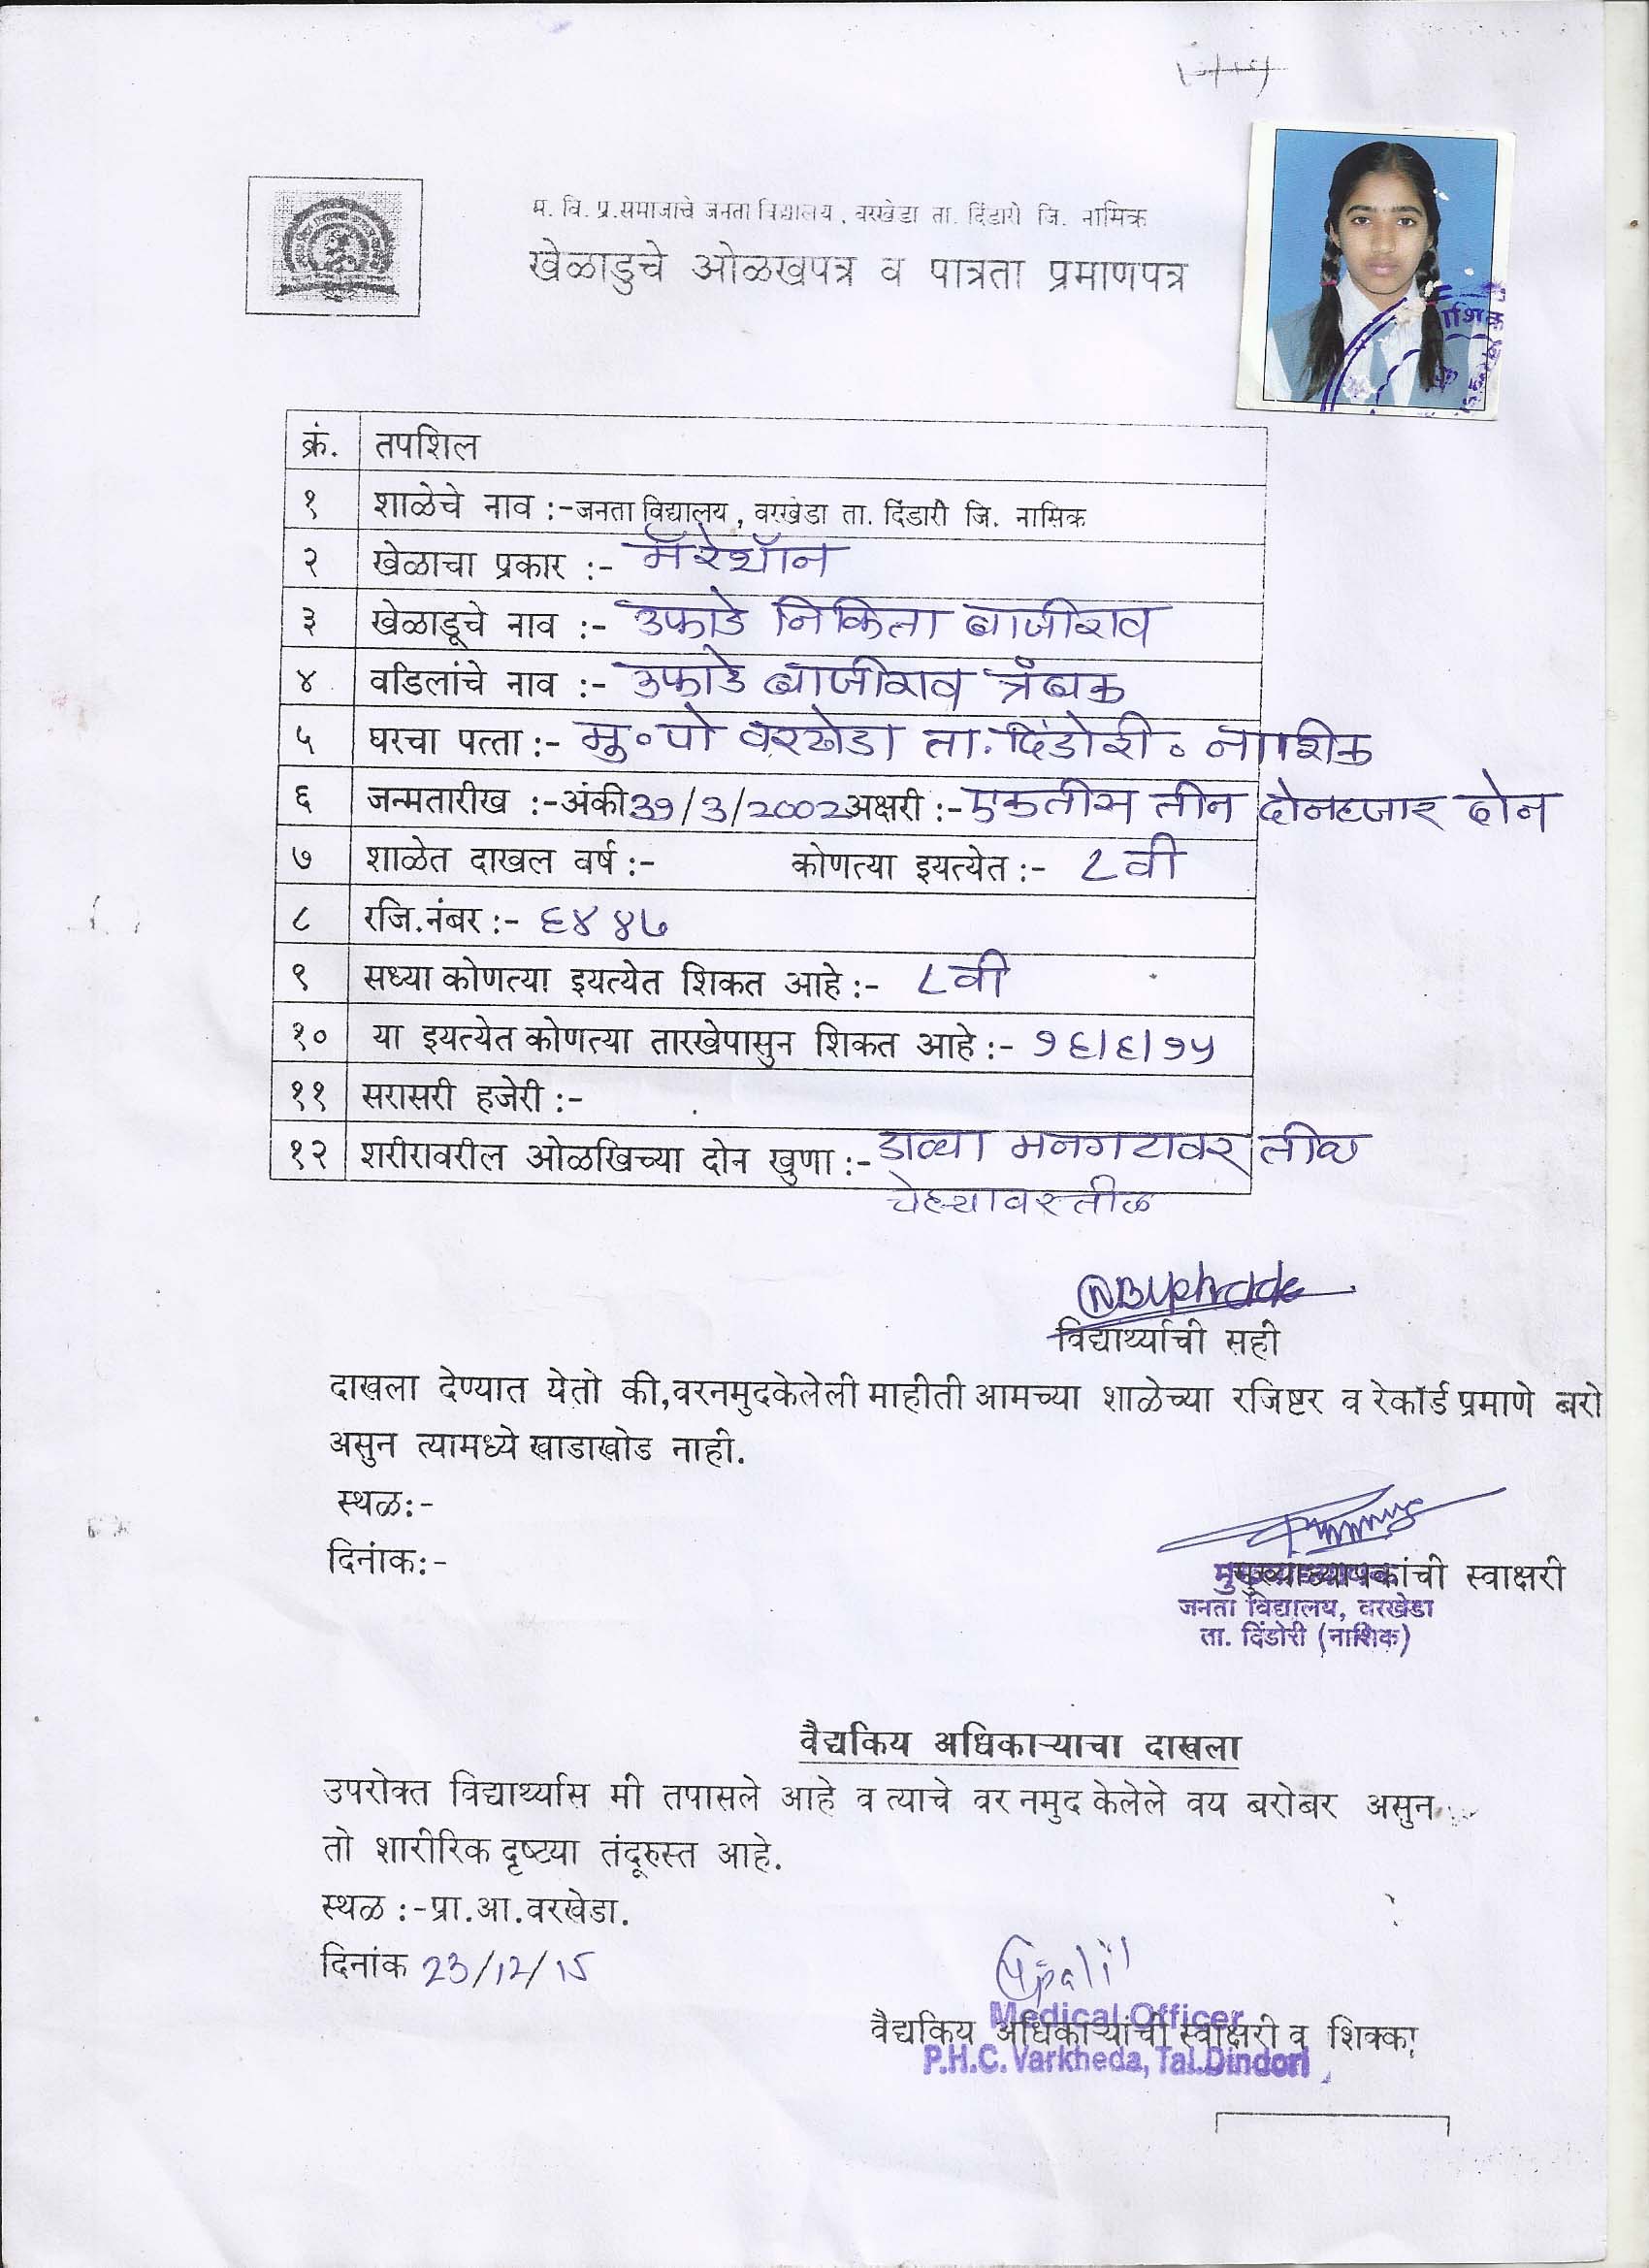 म. वि. प्र.समाजाचे जनता विद्यालय, वरखेडा ता. दिंडारी जि. नासिक
खेळाडुचे ओळखपत्र व पात्रता प्रमाणपत्र
क्रं. तपशिल
१ शाळेचे नाव :-जनता विद्यालय, वरखेडा ता. दिंडारी जि. नासिक
२ खेळाचा प्रकार :- मॅरेथॉन
३ खेळाडूचे नाव :- उफाडे निकिता बाजीराव
४ वडिलांचे नाव :- उफाडे बाजीराव त्रँबक
५ घरचा पत्ता :- मु॰पो वरखेडा ता.दिंडोरी॰ नाशिक
६ जन्मतारीख :-अंकी 31/3/2002 अक्षरी :- एकतीस तीन दोनहजार दोन
७ शाळेत दाखल वर्ष :- कोणत्या इयत्येत :- ८वी
८ रजि.नंबर :- ६४४७
९ सध्या कोणत्या इयत्येत शिकत आहे :- ८वी
१० या इयत्येत कोणत्या तारखेपासुन शिकत आहे :- १६/६/१५
११ सरासरी हजेरी :-
१२ शरीरावरील ओळखिच्या दोन खुणा :- डाव्या मनगटावर तीळ
चेहऱ्यावर तीळ
NBUphade
विद्यार्थ्याची सही
दाखला देण्यात येतो की,वरनमुदकेलेली माहीती आमच्या शाळेच्या रजिष्टर व रेकॉर्ड प्रमाणे बरो
असुन त्यामध्ये खाडाखोड नाही.
स्थळ:-
दिनांक:-
मुख्याध्यापकांची स्वाक्षरी
जनता विद्यालय, वरखेडा
ता. दिंडोरी (नाशिक)
वैद्यकिय अधिकाऱ्याचा दाखला
उपरोक्त विद्यार्थ्यास मी तपासले आहे व त्याचे वर नमुद केलेले वय बरोबर असुन
तो शारीरिक दृष्टया तंदूरुस्त आहे.
स्थळ :-प्रा.आ.वरखेडा.
दिनांक 23/12/15
Medical Officer
वैद्यकिय अधिकाऱ्यांची स्वाक्षरी व शिक्का
P.H.C. Varkheda, Tal.Dindori